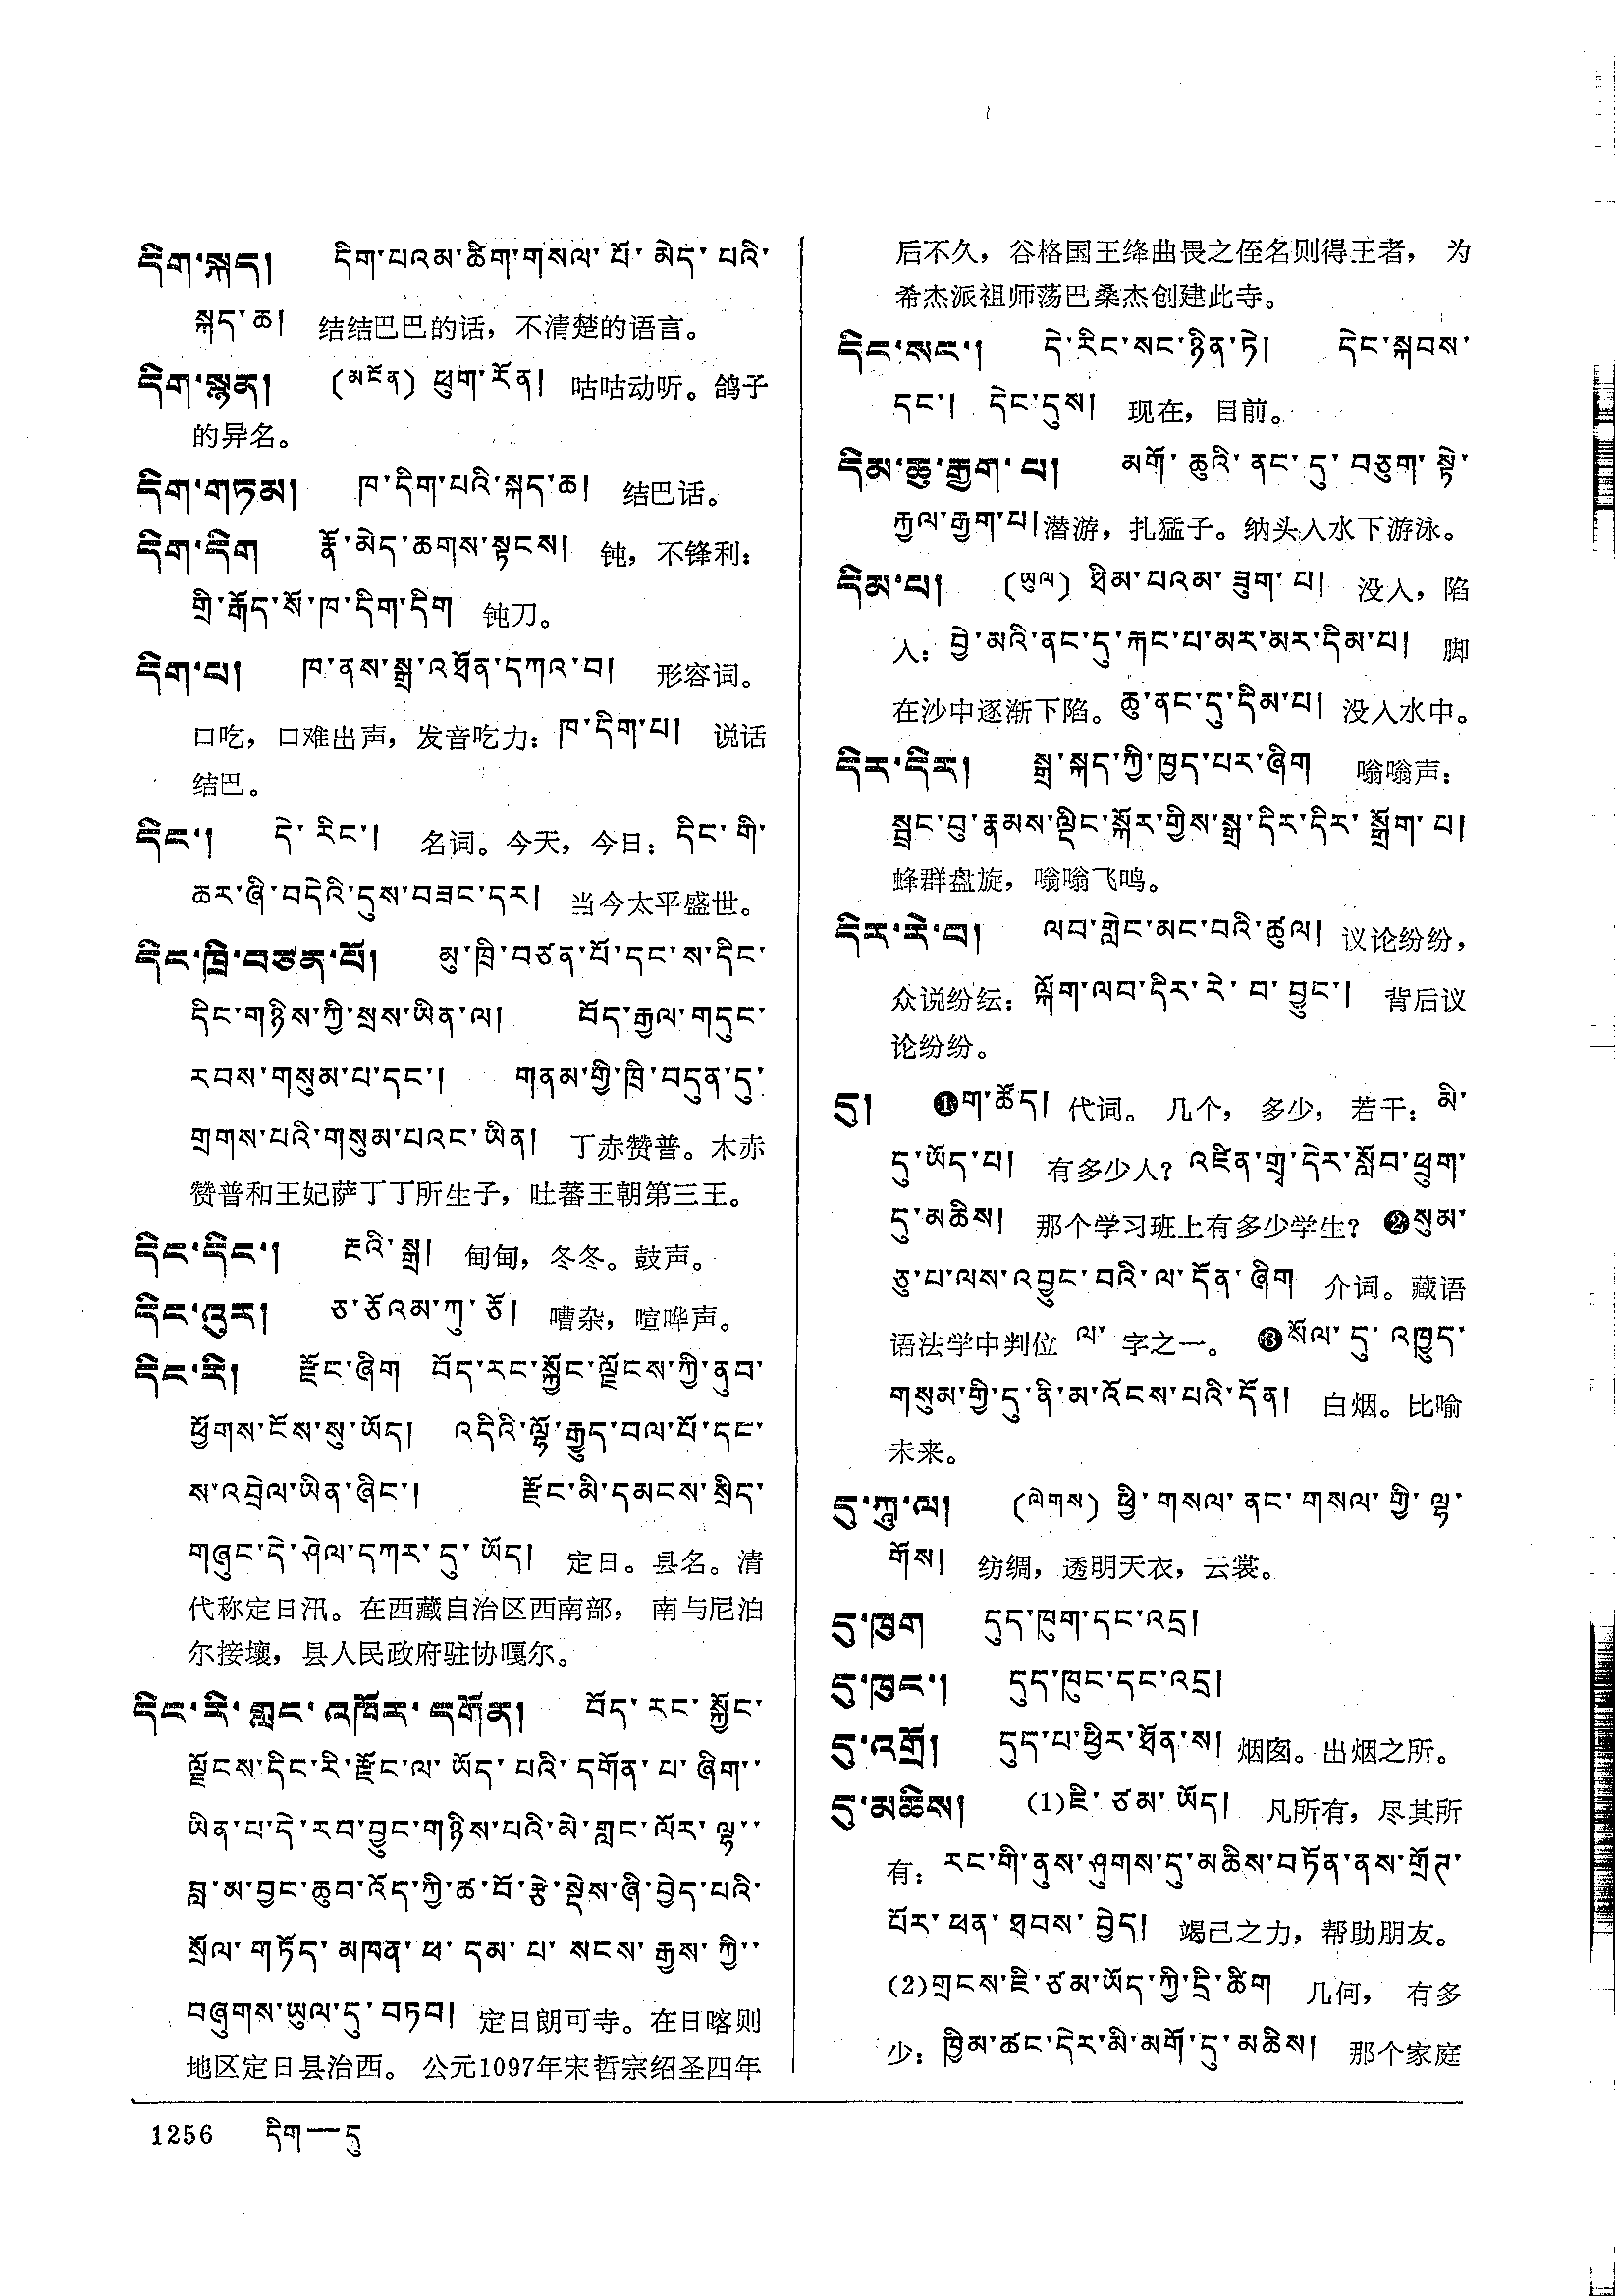 དིག་སྐད། དིག་པའམ་ཚིག་གསལ་པོ་མེད་པའི་
སྐད་ཆ། 结结巴巴的话，不清楚的语言。
དིག་སྙན། (མངོན) ཕུག་རོན། 咕咕动听。鸽子
的异名。
དིག་གཏམ། ཁ་དིག་པའི་སྐད་ཆ། 结巴话。
དིག་དིག རྣོ་མེད་ཆགས་སྟངས། 钝，不锋利：
གྲི་རྒོད་སོ་ཁ་དིག་དིག 钝刀。
དིག་པ། ཁ་ནས་སྒྲ་འཐོན་དཀའ་བ། 形容词。
口吃，口难出声，发音吃力：ཁ་དིག་པ། 说话
结巴。
དིང་། དེ་རིང་། 名词。今天，今日：དིང་གི་
ཆར་ཞི་བདེའི་དུས་བཟང་དར། 当今太平盛世。
དིང་ཁྲི་བཙན་པོ། མུ་ཁྲི་བཙན་པོ་དང་ས་དིང་
དིང་གཉིས་ཀྱི་སྲས་ཡིན་ལ། བོད་རྒྱལ་གདུང་
རབས་གསུམ་པ་དང་། གནམ་གྱི་ཁྲི་བདུན་དུ་
གྲགས་པའི་གསུམ་པའང་ཡིན། 丁赤赞普。木赤
赞普和王妃萨丁丁所生子，吐蕃王朝第三王。
དིང་དིང་། རྔའི་སྒྲ། 甸甸，冬冬。鼓声。
དིང་འུར། ཅ་ཅོའམ་ཀུ་ཅོ། 嘈杂，喧哗声。
དིང་རི། རྫོང་ཞིག བོད་རང་སྐྱོང་ལྗོངས་ཀྱི་ནུབ་
ཕྱོགས་ངོས་སུ་ཡོད། འདིའི་ལྷོ་རྒྱུད་བལ་པོ་དང་
ས་འབྲེལ་ཡིན་ཞིང་། རྫོང་མི་དམངས་སྲིད་
གཞུང་དེ་ཤེལ་དཀར་དུ་ཡོད། 定日。县名。清
代称定日汛。在西藏自治区西南部，南与尼泊
尔接壤，县人民政府驻协嘎尔。
དིང་རི་གླང་འཁོར་དགོན། བོད་རང་སྐྱོང་
ལྗོངས་དིང་རི་རྫོང་ལ་ཡོད་པའི་དགོན་པ་ཞིག་
ཡིན་པ་དེ་རབ་བྱུང་གཉིས་པའི་མེ་གླང་ལོར་ལྷ་
བླ་མ་བྱང་ཆུབ་འོད་ཀྱི་ཚ་བོ་རྩེ་སྡེས་ཞི་བྱེད་པའི་
སྲོལ་གཏོད་མཁན་ཕ་དམ་པ་སངས་རྒྱས་ཀྱི་
བཞུགས་ཡུལ་དུ་བཏབ། 定日朗可寺。在日喀则
地区定日县治西。公元1097年宋哲宗绍圣四年
后不久，谷格国王绛曲畏之侄名则得王者，为
希杰派祖师荡巴桑杰创建此寺。
དིང་སང་། དེ་རིང་སང་ཉིན་ཏེ། དེང་སྐབས་
དང་། དེང་དུས། 现在，目前。
དིམ་ཆུ་རྒྱག་པ། མགོ་ཆུའི་ནང་དུ་བཅུག་སྟེ་
རྐྱལ་རྒྱག་པ། 潜游，扎猛子。纳头入水下游泳。
དིམ་པ། (ཡུལ) ཐིམ་པའམ་ཟུག་པ། 没入，陷
入：བྱེ་མའི་ནང་དུ་རྐང་པ་མར་མར་དིམ་པ། 脚
在沙中逐渐下陷。ཆུ་ནང་དུ་དིམ་པ། 没入水中。
དིར་དིར། སྒྲ་སྐད་ཀྱི་ཁྱད་པར་ཞིག 嗡嗡声：
སྦྲང་བུ་རྣམས་ལྡིང་སྐོར་གྱིས་སྒྲ་དིར་དིར་སྒྲོག་པ།
蜂群盘旋，嗡嗡飞鸣。
དིར་རེ་བ། ལབ་གླེང་མང་བའི་ཚུལ། 议论纷纷，
众说纷纭：ལྐོག་ལབ་དིར་རེ་བ་བྱུང་། 背后议
论纷纷。
དུ། ❶ག་ཚོད། 代词。几个，多少，若干：མི་
དུ་ཡོད་པ། 有多少人？འཛིན་གྲྭ་དེར་སློབ་ཕྲུག་
དུ་མཆིས། 那个学习班上有多少学生？❷སུམ་
ཅུ་པ་ལས་འབྱུང་བའི་ལ་དོན་ཞིག 介词。藏语
语法学中判位 ལ་ 字之一。❸སོལ་དུ་འཁྱུད་
གསུམ་གྱི་དུ་ནི་མ་འོངས་པའི་དོན། 白烟。比喻
未来。
དུ་ཀཱུ་ལ། (ལེགས) ཕྱི་གསལ་ནང་གསལ་གྱི་ལྷ་
གོས། 纺绸，透明天衣，云裳。
དུ་ཁུག དུད་ཁུག་དང་འདྲ།
དུ་ཁུང་། དུད་ཁུང་དང་འདྲ།
དུ་འགྲོ། དུད་པ་ཕྱིར་ཐོན་ས། 烟囱。出烟之所。
དུ་མཆིས། (1)ཇི་ཙམ་ཡོད། 凡所有，尽其所
有：རང་གི་ནུས་ཤུགས་དུ་མཆིས་བཏོན་ནས་གྲོཊ་
པོར་ཕན་ཐབས་བྱེད། 竭己之力，帮助朋友。
(2)གྲངས་ཇི་ཙམ་ཡོད་ཀྱི་དྲི་ཚིག 几何，有多
少：ཁྱིམ་ཚང་དེར་མི་མགོ་དུ་མཆིས། 那个家庭
1256 དིག—དུ